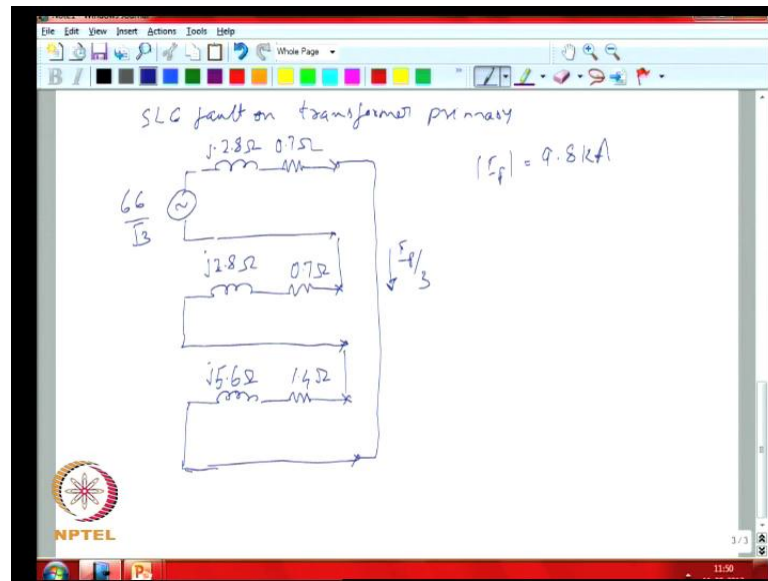 File Edit View Insert Actions Tools Help
Whole Page
B I
SLG fault on transformer primary
j 2.8Ω 0.7Ω
|If| = 9.8 kA
66
√3
j2.8Ω 0.7Ω
If/3
j5.6Ω 1.4Ω
NPTEL
3/3
11:50